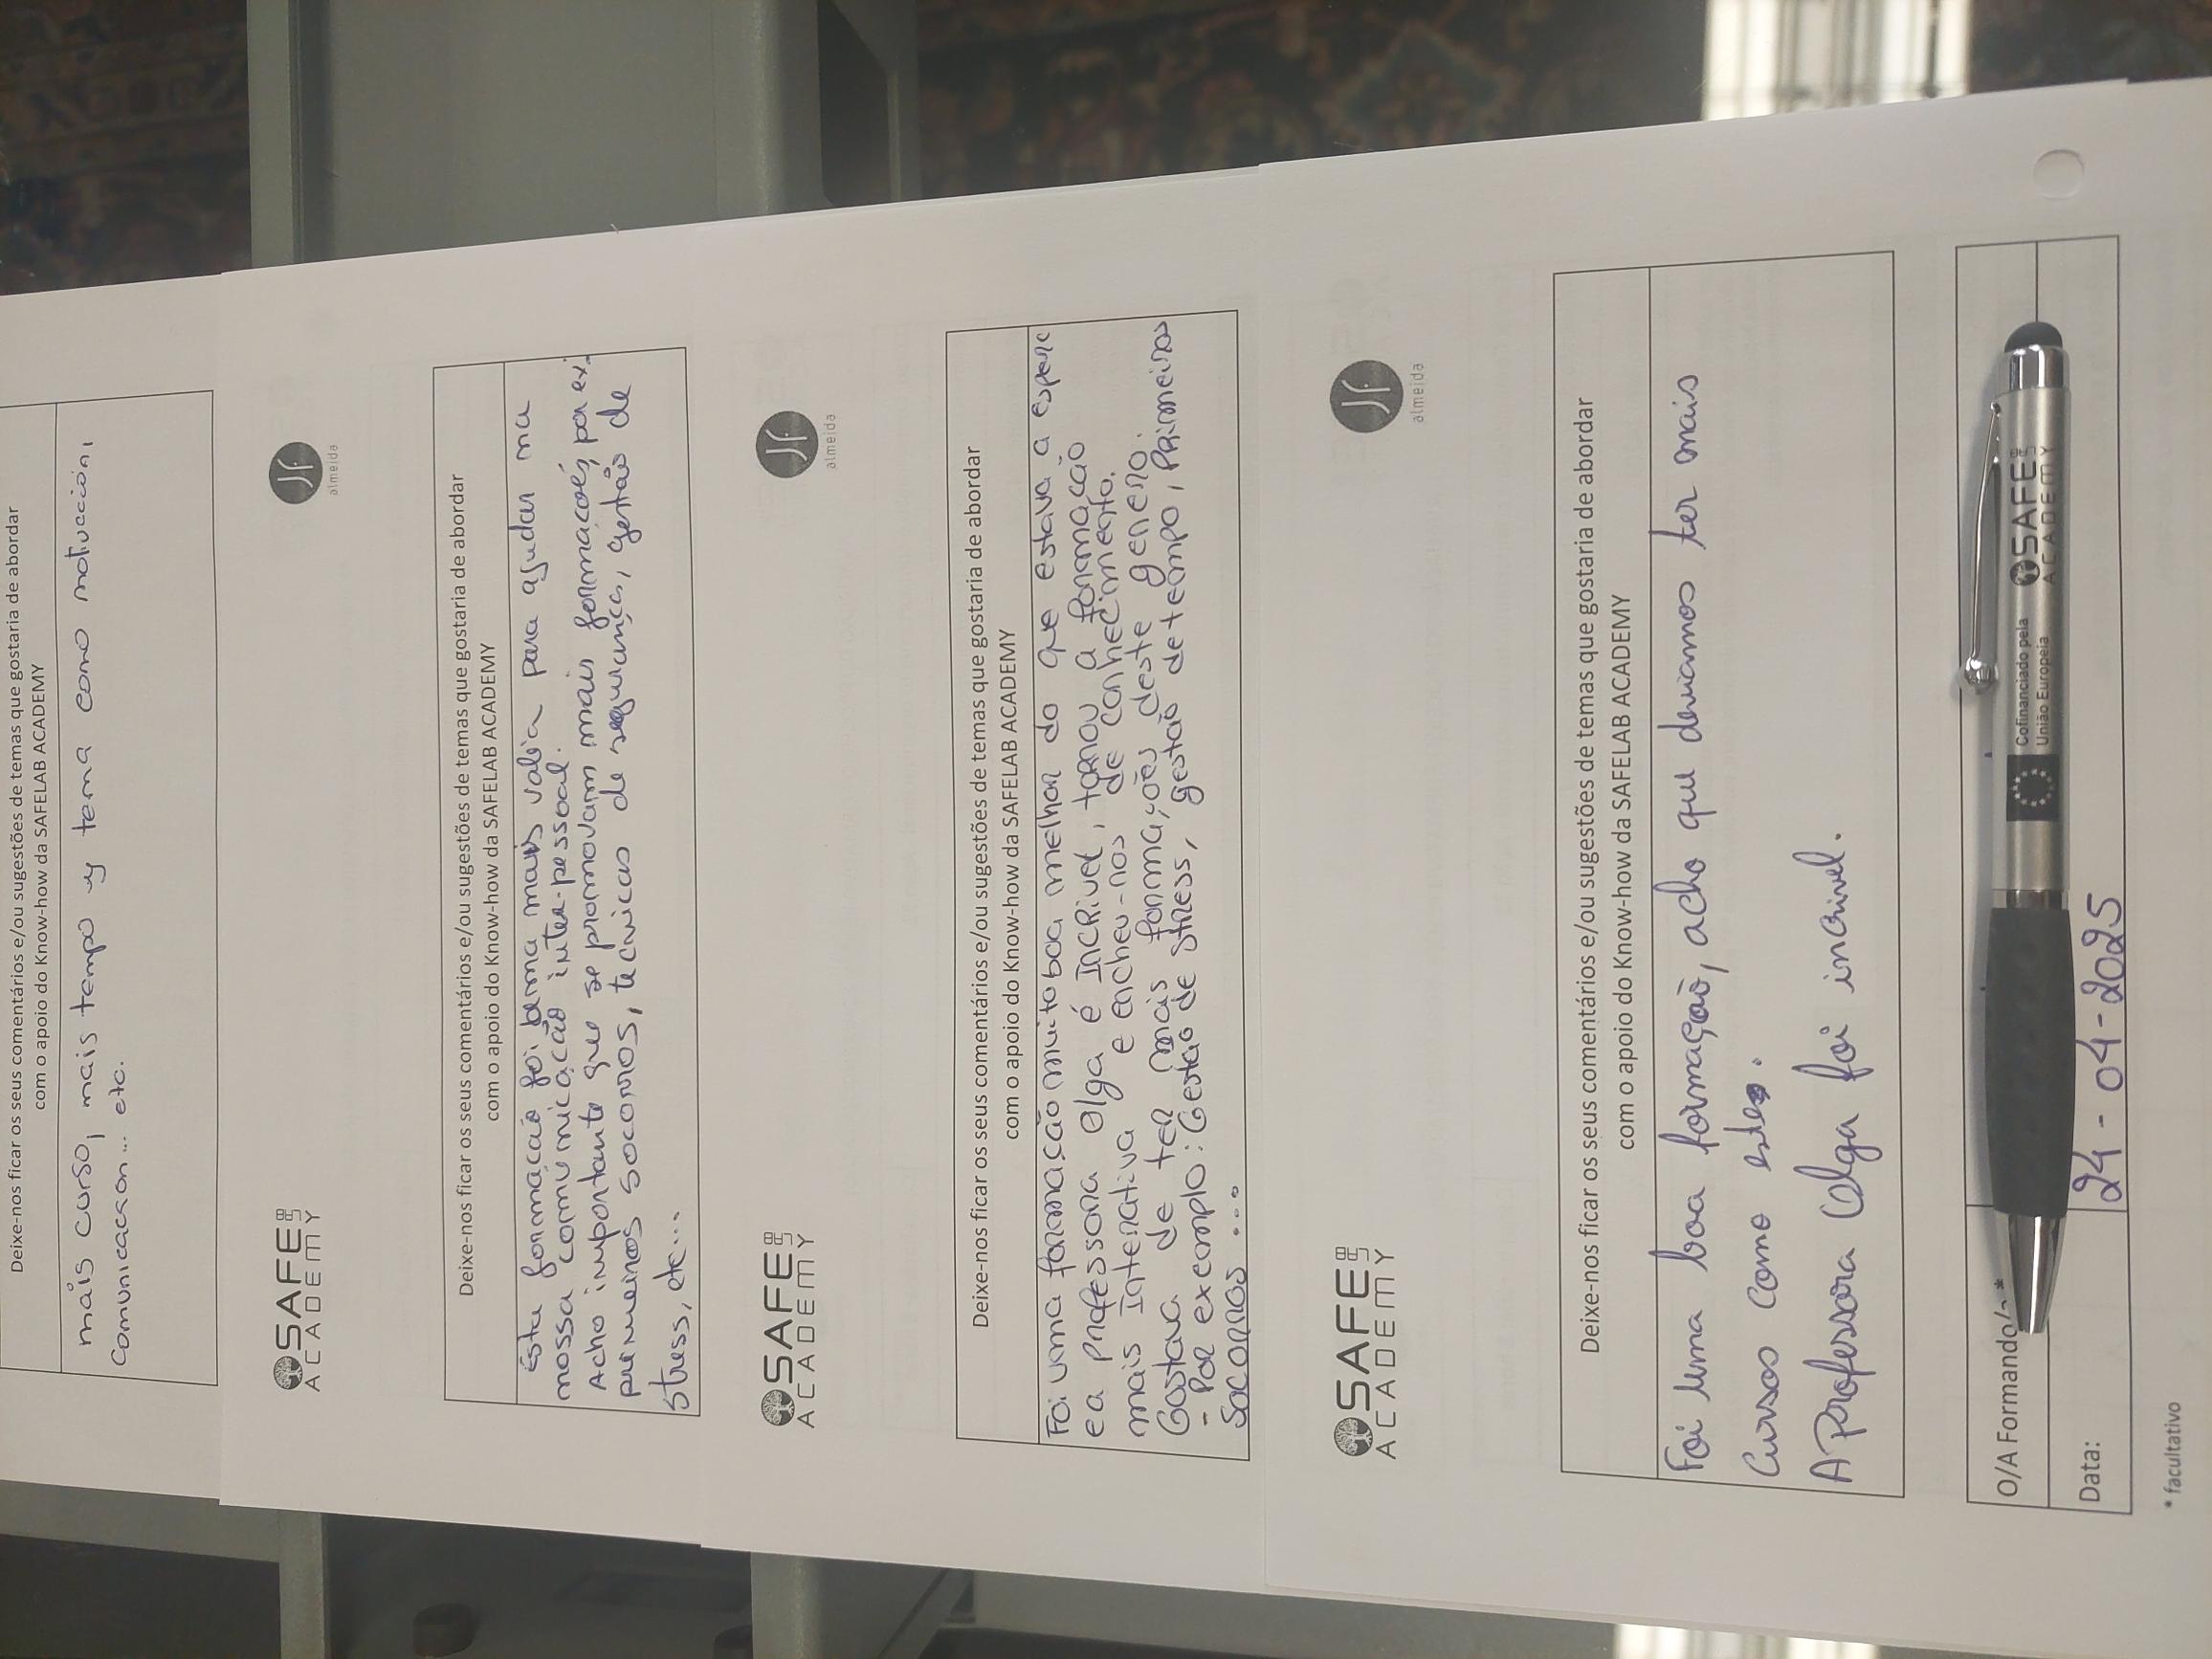 Deixe-nos ficar os seus comentários e/ou sugestões de temas que gostaria de abordar
com o apoio do Know-how da SAFELAB ACADEMY
mais curso, mais tempo y tema como motivacción,
comunicacion... etc.
SAFE
ACADEMY
JF
almeida
Deixe-nos ficar os seus comentários e/ou sugestões de temas que gostaria de abordar
com o apoio do Know-how da SAFELAB ACADEMY
Esta formação foi uma mais valia para ajudar na
nossa comunicação inter-pessoal.
Acho importante que se promovam mais formações, por ex:
primeiros socorros, técnicas de segurança, gestão de
stress, etc...
SAFE
ACADEMY
JF
almeida
Deixe-nos ficar os seus comentários e/ou sugestões de temas que gostaria de abordar
com o apoio do Know-how da SAFELAB ACADEMY
Foi uma formação muito boa melhor do que estava a espera
e a professora Olga é incrivel, tornou a formação
mais interativa e encheu-nos de conhecimento.
Gostava de ter mais formações deste genero.
- Por exemplo: Gestão de stress, gestão de tempo, Primeiros
Socorros ...
SAFE
ACADEMY
JF
almeida
Deixe-nos ficar os seus comentários e/ou sugestões de temas que gostaria de abordar
com o apoio do Know-how da SAFELAB ACADEMY
Foi uma boa formação, acho que deviamos ter mais
cursos como este.
A Professora Olga foi incrivel.
O/A Formando/a *
Cofinanciado pela
União Europeia
SAFE
ACADEMY
Data:
24-04-2025
* facultativo